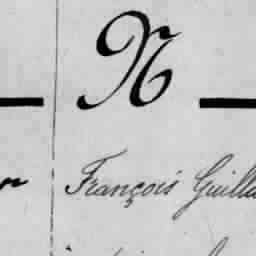 N
François Guill